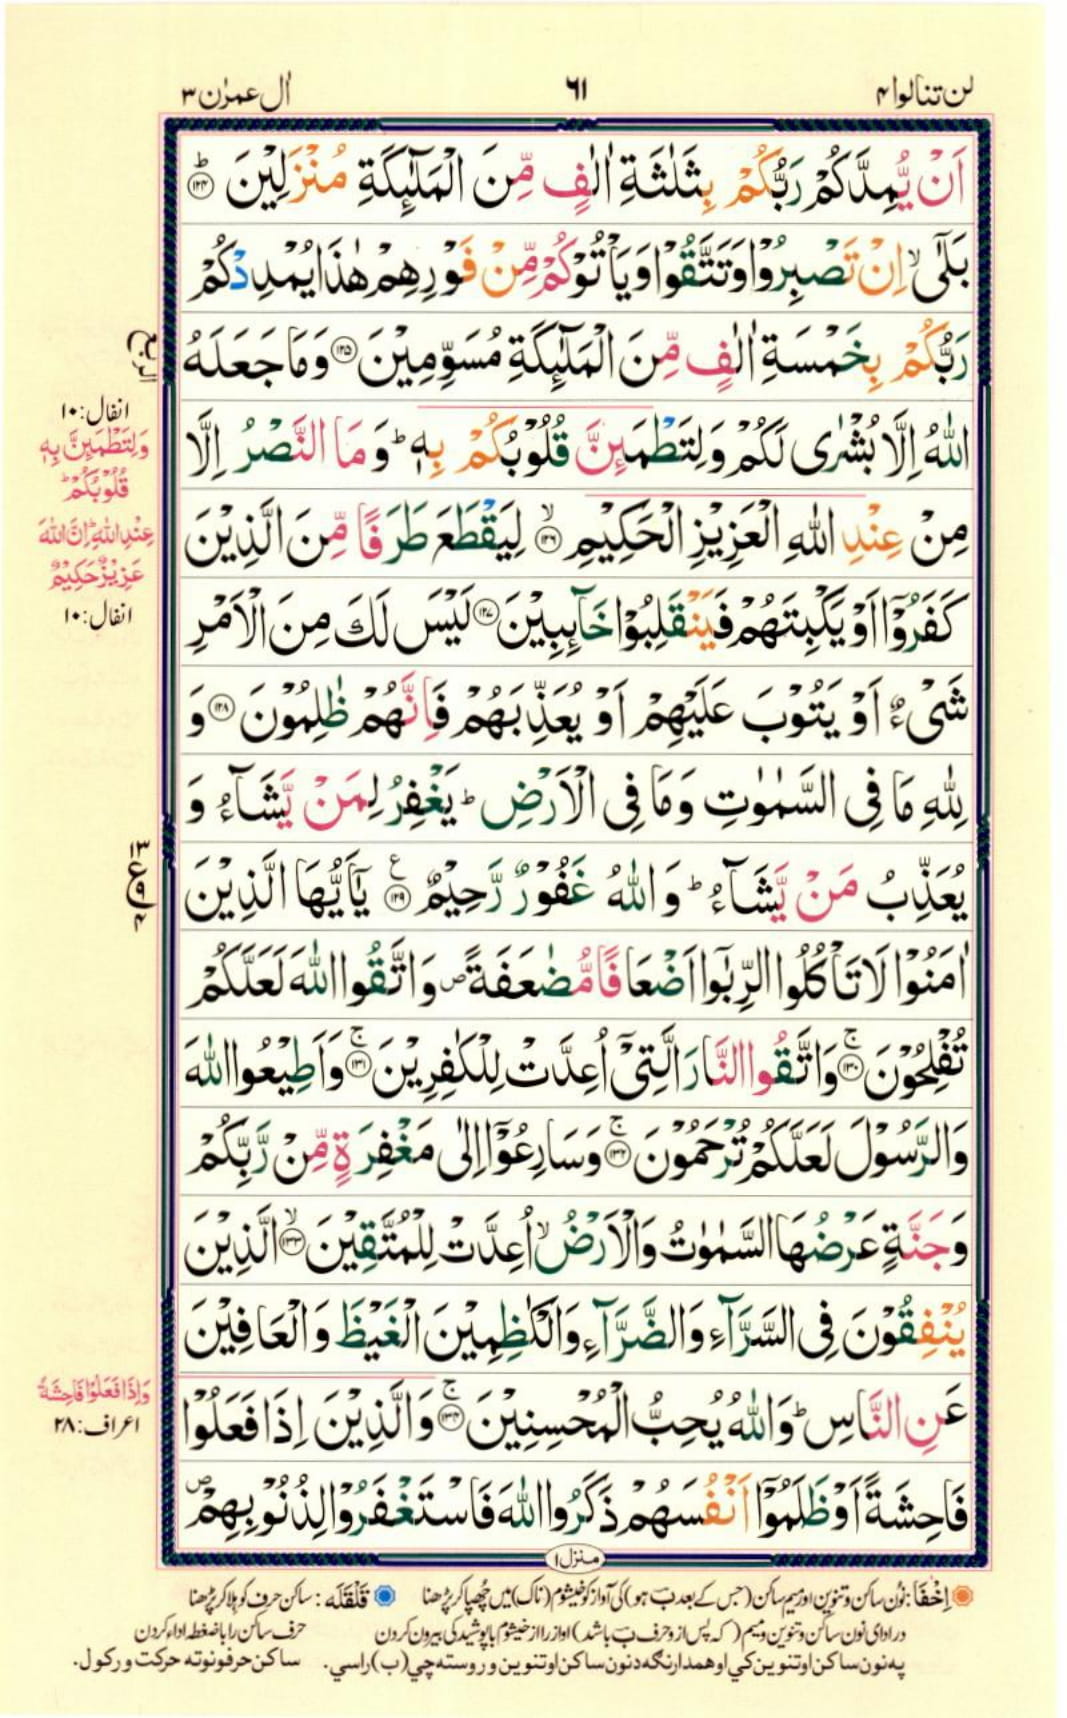 لن تنالوا ۴
۶۱
اٰل عمرٰن ۳
اَنْ يُّمِدَّكُمْ رَبُّكُمْ بِثَلٰثَةِ اٰلٰفٍ مِّنَ الْمَلٰٓئِكَةِ مُنْزَلِيْنَ ؕ ﴿۱۲۴﴾
بَلٰٓى ۙ اِنْ تَصْبِرُوْا وَتَتَّقُوْا وَيَاْتُوْكُمْ مِّنْ فَوْرِهِمْ هٰذَا يُمْدِدْكُمْ
رَبُّكُمْ بِخَمْسَةِ اٰلٰفٍ مِّنَ الْمَلٰٓئِكَةِ مُسَوِّمِيْنَ ﴿۱۲۵﴾ وَمَا جَعَلَهُ
اللّٰهُ اِلَّا بُشْرٰى لَكُمْ وَلِتَطْمَئِنَّ قُلُوْبُكُمْ بِهٖ ؕ وَمَا النَّصْرُ اِلَّا
مِنْ عِنْدِ اللّٰهِ الْعَزِيْزِ الْحَكِيْمِ ۙ ﴿۱۲۶﴾ لِيَقْطَعَ طَرَفًا مِّنَ الَّذِيْنَ
كَفَرُوْٓا اَوْ يَكْبِتَهُمْ فَيَنْقَلِبُوْا خَآئِبِيْنَ ﴿۱۲۷﴾ لَيْسَ لَكَ مِنَ الْاَمْرِ
شَیْءٌ اَوْ يَتُوْبَ عَلَيْهِمْ اَوْ يُعَذِّبَهُمْ فَاِنَّهُمْ ظٰلِمُوْنَ ﴿۱۲۸﴾ وَ
لِلّٰهِ مَا فِى السَّمٰوٰتِ وَمَا فِى الْاَرْضِ ؕ يَغْفِرُ لِمَنْ يَّشَآءُ وَ
يُعَذِّبُ مَنْ يَّشَآءُ ؕ وَاللّٰهُ غَفُوْرٌ رَّحِيْمٌ ع ﴿۱۲۹﴾ يٰٓاَيُّهَا الَّذِيْنَ
اٰمَنُوْا لَا تَاْكُلُوا الرِّبٰٓوا اَضْعَافًا مُّضٰعَفَةً ص وَاتَّقُوا اللّٰهَ لَعَلَّكُمْ
تُفْلِحُوْنَ ۚ ﴿۱۳۰﴾ وَاتَّقُوا النَّارَ الَّتِىْٓ اُعِدَّتْ لِلْكٰفِرِيْنَ ۚ ﴿۱۳۱﴾ وَاَطِيْعُوا اللّٰهَ
وَالرَّسُوْلَ لَعَلَّكُمْ تُرْحَمُوْنَ ۚ ﴿۱۳۲﴾ وَسَارِعُوْٓا اِلٰى مَغْفِرَةٍ مِّنْ رَّبِّكُمْ
وَجَنَّةٍ عَرْضُهَا السَّمٰوٰتُ وَالْاَرْضُ ۙ اُعِدَّتْ لِلْمُتَّقِيْنَ ۙ ﴿۱۳۳﴾ الَّذِيْنَ
يُنْفِقُوْنَ فِى السَّرَّآءِ وَالضَّرَّآءِ وَالْكٰظِمِيْنَ الْغَيْظَ وَالْعَافِيْنَ
عَنِ النَّاسِ ؕ وَاللّٰهُ يُحِبُّ الْمُحْسِنِيْنَ ۚ ﴿۱۳۴﴾ وَالَّذِيْنَ اِذَا فَعَلُوْا
فَاحِشَةً اَوْ ظَلَمُوْٓا اَنْفُسَهُمْ ذَكَرُوا اللّٰهَ فَاسْتَغْفَرُوْا لِذُنُوْبِهِمْ ص
منزل ۱
الربع
انفال: ۱۰
وَلِتَطْمَئِنَّ بِهٖ
قُلُوْبُكُمْ ؕ
عِنْدِ اللّٰهِ ؕ اِنَّ اللّٰهَ
عَزِيْزٌ حَكِيْمٌ
انفال: ۱۰
۱۳
ع
۹
۴
وَاِذَا فَعَلُوْا فَاحِشَةً
اعراف: ۲۸
اِخْفَا: نُون ساکن و تنوین اور میم ساکن (جس کے بعد بَ ہو) کی آواز کو خیشوم (ناک) میں چُھپا کر پڑھنا
قَلْقَلَه: ساکن حرف کو ہلا کر پڑھنا
در ادای نون ساکن و تنوین و میم (که پس از و حرف بَ باشد) اواز را از خیشوم با پوشیدگی بیرون کردن
حرف ساکن را با ضغطه ادا کردن
په نون ساکن او تنوین کي او همدارنګه د نون ساکن او تنوین وروسته چي (ب) راسي.
ساکن حرفونو ته حرکت ورکول.